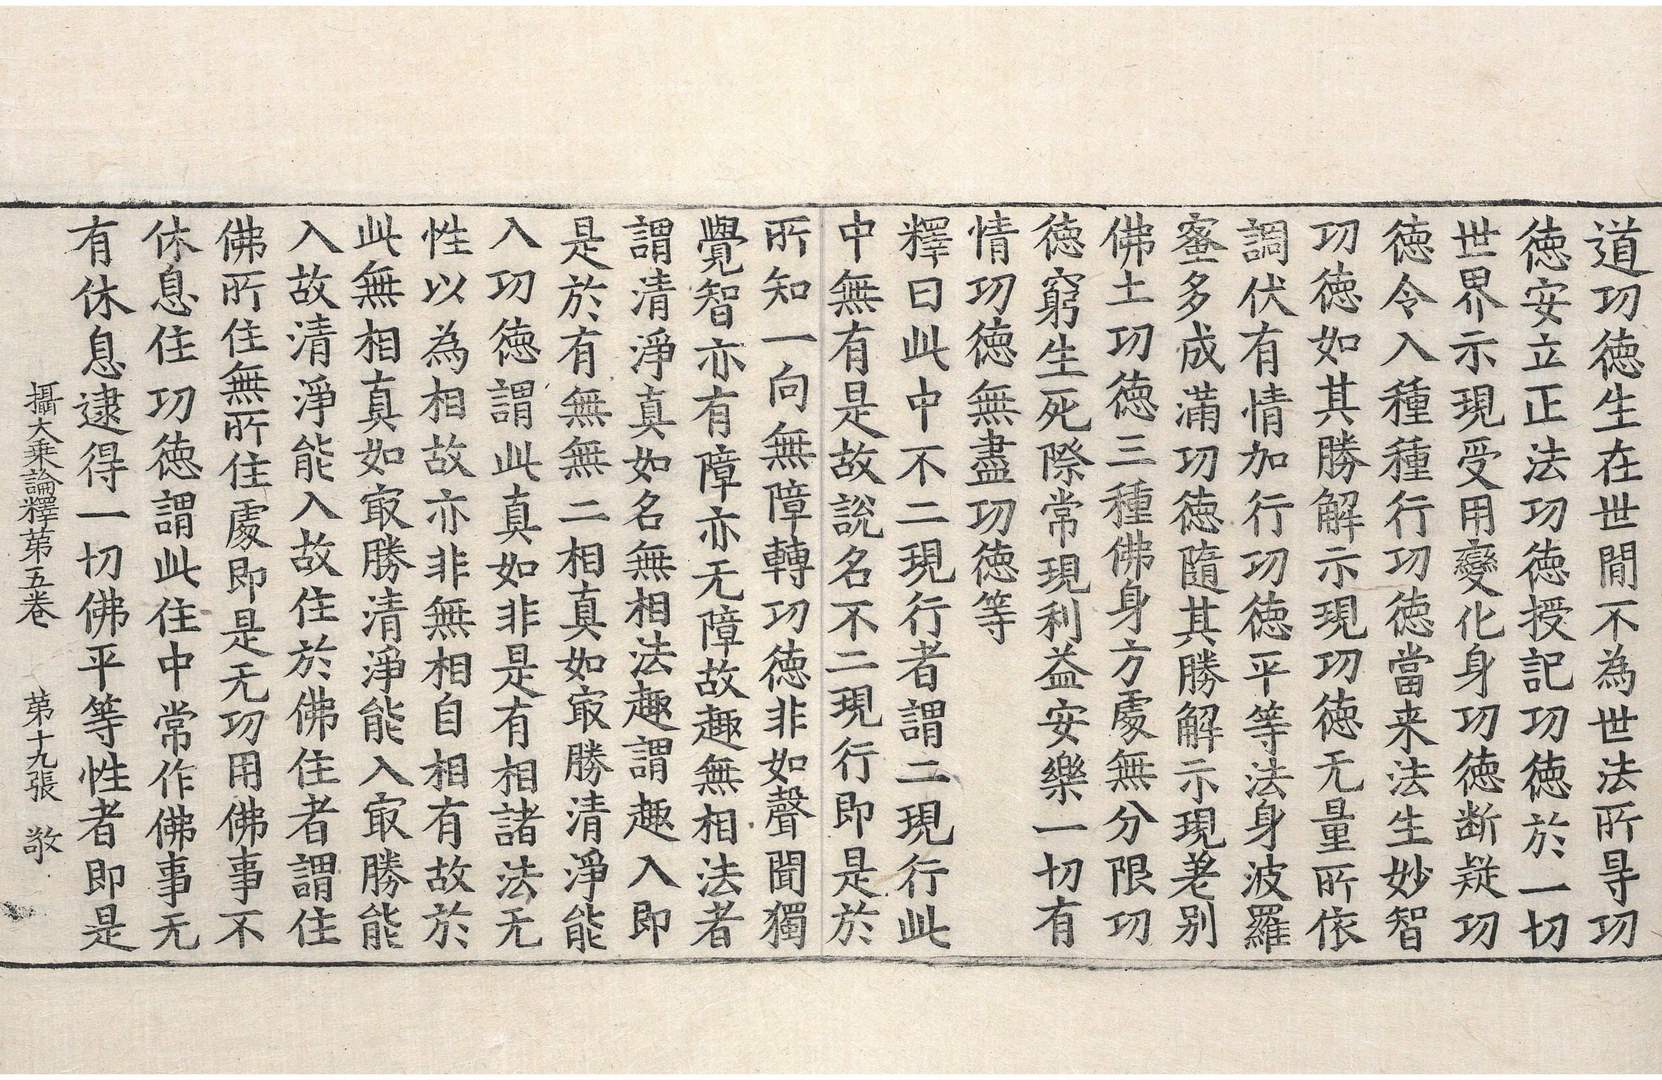 道功徳生在世閒不為世法所㝵功
徳安立正法功徳授記功徳於一切
世界示現受用變化身功徳断疑功
徳令入種種行功徳當来法生妙智
功徳如其勝解示現功徳无量所依
調伏有情加行功徳平等法身波羅
蜜多成滿功徳隨其勝解示現差别
佛土功徳三種佛身方處無分限功
徳窮生死際常現利益安樂一切有
情功徳無盡功徳等
釋曰此中不二現行者謂二現行此
中無有是故說名不二現行即是於
所知一向無障轉功徳非如聲聞獨
覺智亦有障亦无障故趣無相法者
謂清淨真如名無相法趣謂趣入即
是於有無無二相真如㝡勝清淨能
入功徳謂此真如非是有相諸法无
性以為相故亦非無相自相有故於
此無相真如㝡勝清淨能入㝡勝能
入故清淨能入故住於佛住者謂住
佛所住無所住處即是无功用佛事不
休息住功徳謂此住中常作佛事无
有休息逮得一切佛平等性者即是
攝大乗論釋苐五卷　苐十九張　敬